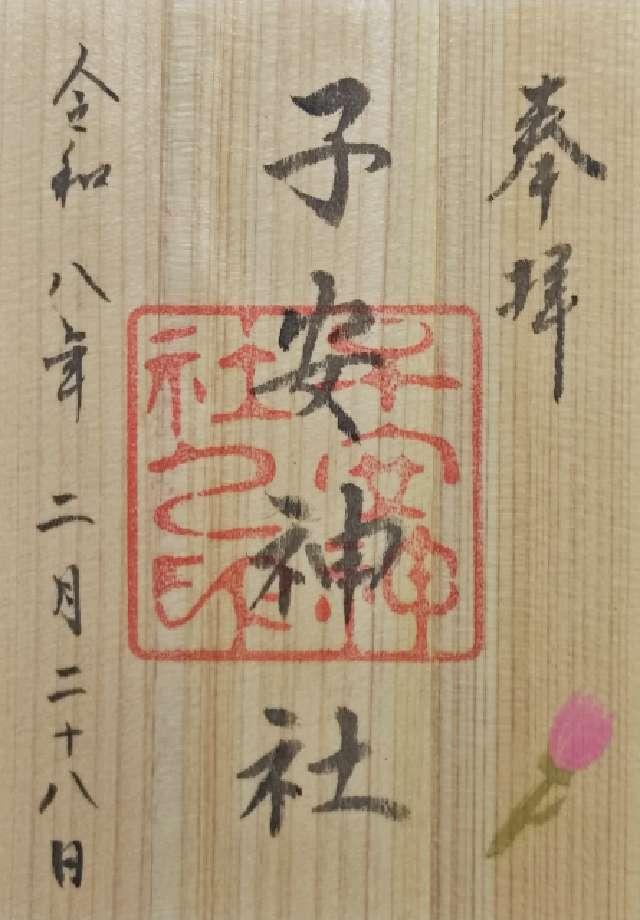 奉拝
子安神社
子安神社之印
令和八年二月二十八日